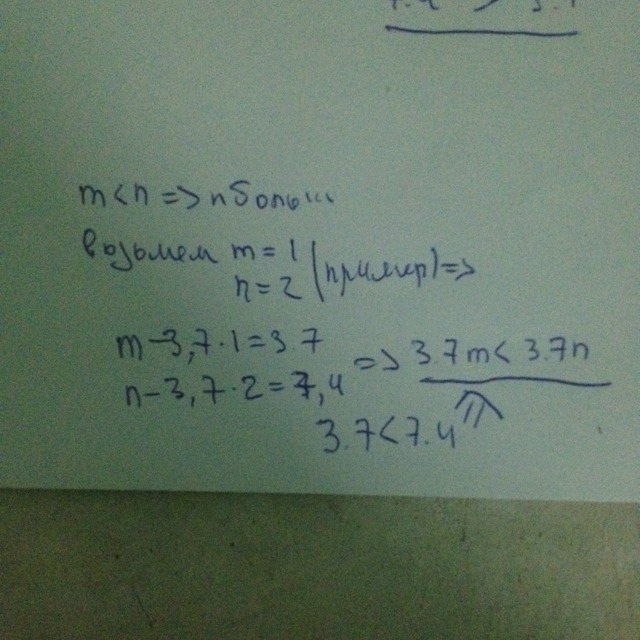 m<n => n больш
возьмем m = 1
n = 2 (пример) =>
m - 3,7 · 1 = 3 7
n - 3,7 · 2 = 7,4
=> 3.7m < 3.7n
3.7 < 7.4